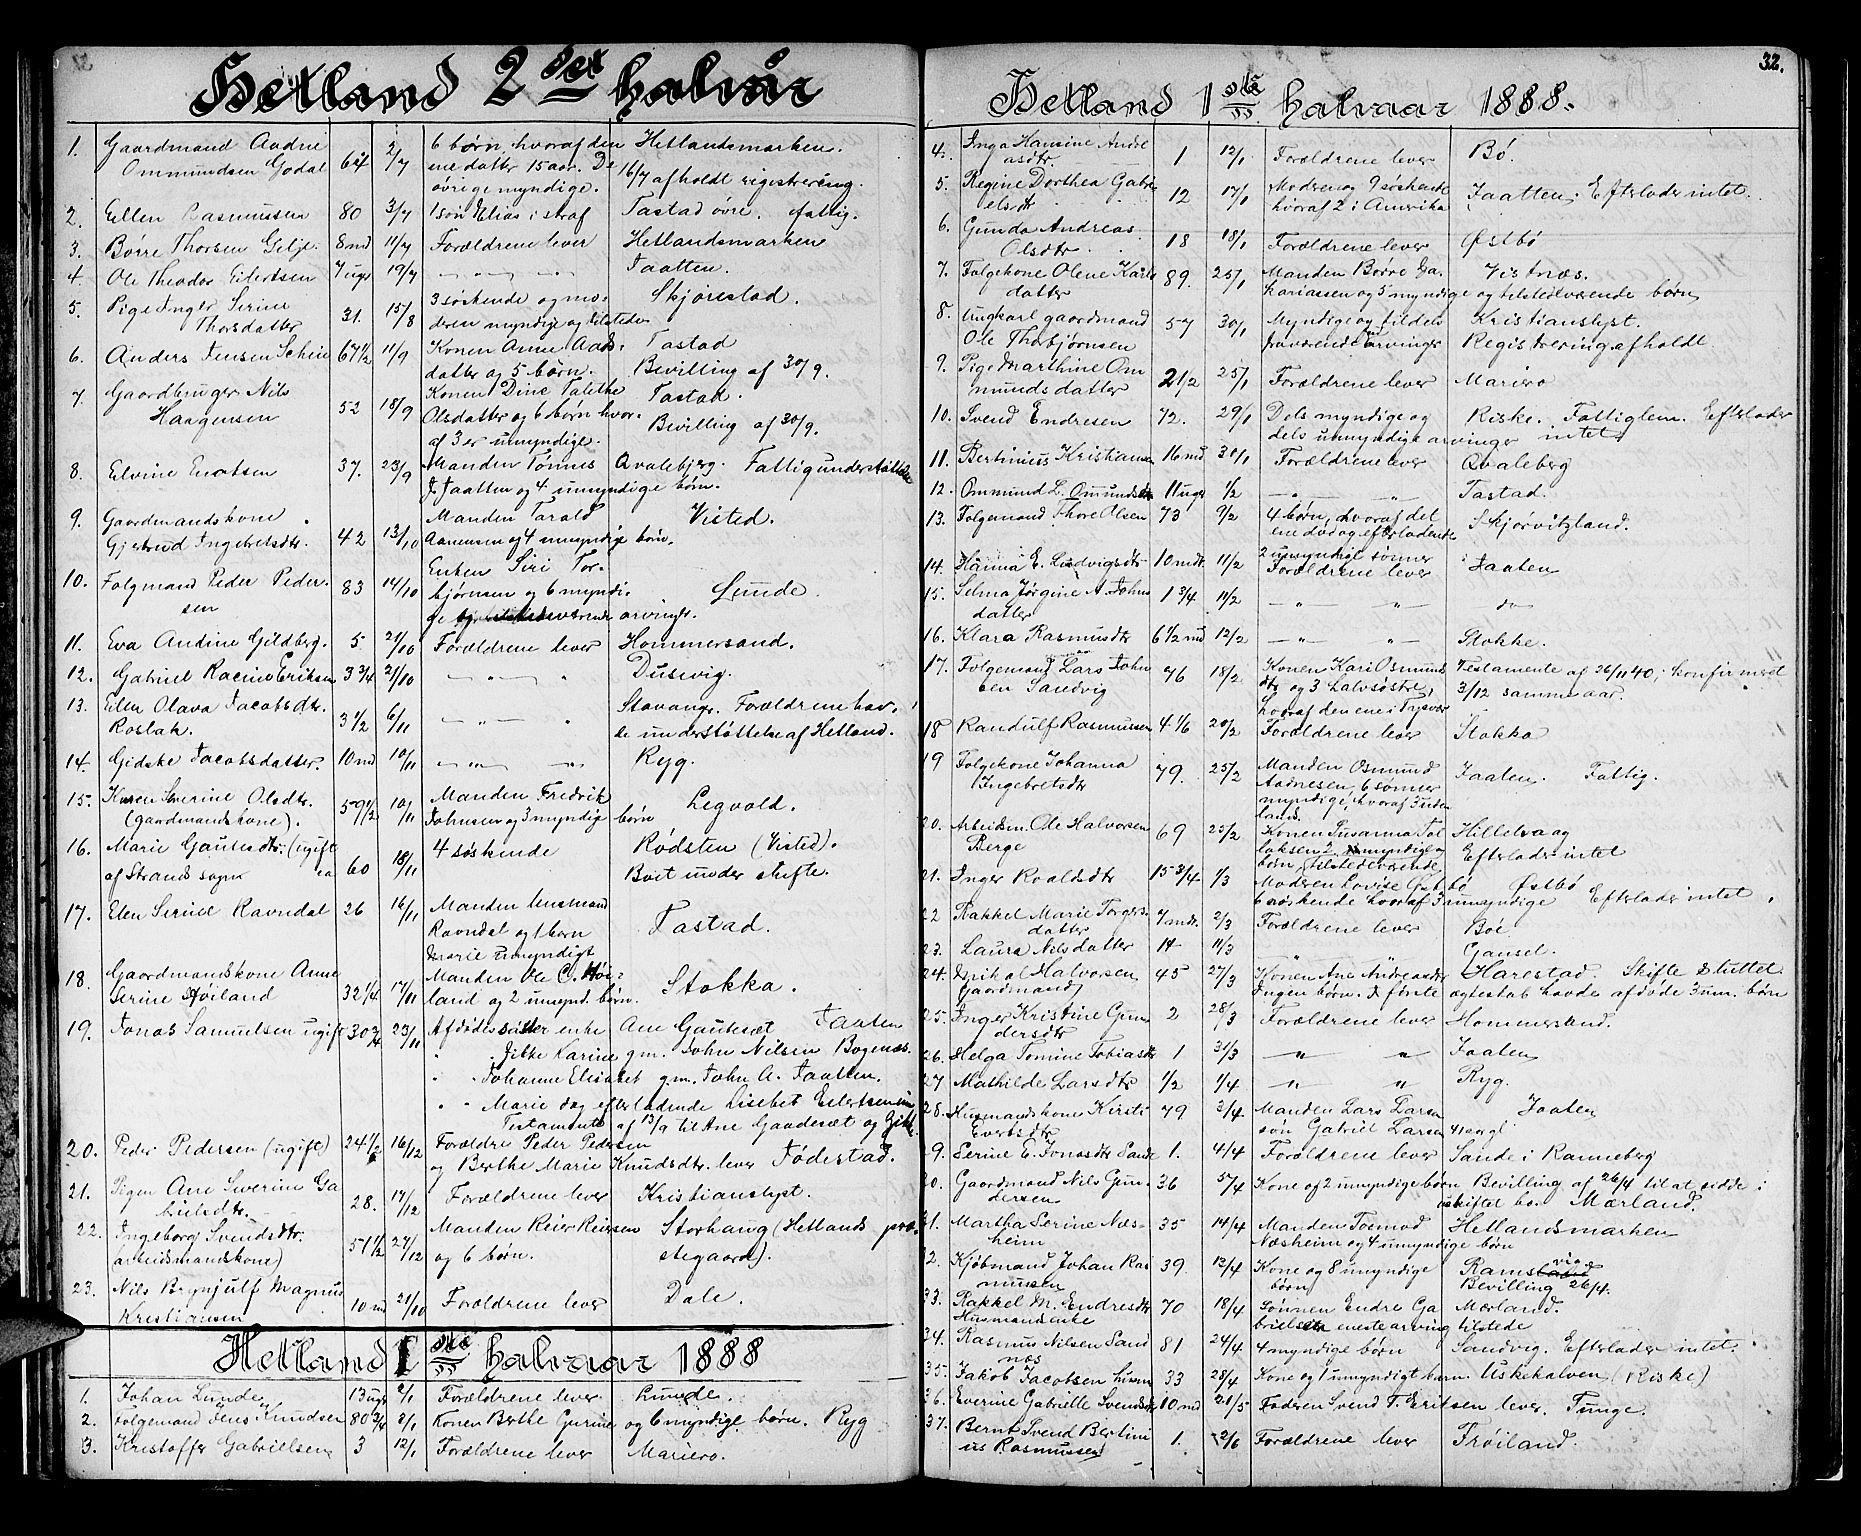 Hetland 2det halvår
1. Gaardmand Aadne 64 2/7 6 børn, hvoraf den Hetlandsmarken.
Ommundsen Godal ene datter 15 aar. De 16/7 afholdt registrering.
øvrige myndige.
2. Ellen Rasmussen 80 3/7 1 søn Elias i straf Tastad øvre. fattig.
3. Børre Thorsen Gilje 8 md 11/7 Forældrene lever Hetlandsmarken
4. Ole Theodor Eilertsen 7 ugr 19/7 — „ — „ Jaatten.
5. Pige Inger Serine 31. 15/8 3 søskende og mo- Skjørestad.
Thorsdatter deren myndige og tilstede
6. Anders Jensen Scheie 67 1/2 11/9 Konen Anne Aads- Tastad
datter og 5 børn. Bevilling af 30/9.
7. Gaardbruger Nils 52 18/9 Konen Dine Talethe Tastad.
Haagensen Olsdatter og 6 børn hvor- Bevilling af 30/9.
af 3 er umyndige.
8. Elvine Enoksen 37. 23/9 Manden Tønnes Qvalebjerg. Fattigunderstøttelse
J. Jaatten og 4 umyndige børn.
9. Gaardmandskone 42 13/10 Manden Tarald Visted.
Gjertrud Ingebretsdtr. Aanensen og 4 umyndige børn.
10. Folgmand Peder Peder- 83 14/10 Enken Siri Tor- Lunde.
sen bjørnsen og 6 myndi-
ge arvinger.
11. Eva Andine Gildberg. 5 21/10 Forældrene lever Hommersand.
12. Gabriel Racine Eriksen 3 3/4 21/10 — „ — „ Dusevig.
13. Ellen Olava Jacobsdtr. 3 1/2 6/11 — „ — „ Stavanger. Forældrene hav-
Rostak. de understøttelse af Hetland.
14. Gidske Jacobsdatter. 10 md 10/11 — „ — „ Ryg.
15. Karen Severine Olsdtr. 59 1/2 10/11 Manden Fredrik Legvold.
(gaardmandskone). Johnsen og 3 myndig børn
16. Marie Gautesdtr. (ugift 60 18/11 4 søskende Rødsten (Visted).
af Strands sogn Boet under skifte.
17. Elen Serine Ravndal 26 16/11 Manden Aasmund Tastad.
Ravndal og 1 barn
Marie umyndigt
18. Gaardmandskone Anne 32 1/4 17/11 Manden Ole C. Høi- Stokka.
Serine Høiland land og 2 umynd. børn.
19. Jonas Samuelsen ugift 30 3/4 23/11 Afdødes søster enke Ane Gautesæt Jaaten
„ Jikke Karine g.m. John Nilsen Bogenæs.
„ „ Johanne Elisabet g.m. John A. Jaatten.
„ „ Marie dog efterladende Lisebet Eilertsen
Testamente af 13/9 til Ane Gaudesæt og Jikk.
20. Peder Pedersen (ugift) 24 1/2 16/12 Forældre Peder Pedersen
og Berthe Marie Knudsdtr. lever Tødestad.
21. Pigen Ane Severine Ga 28. 17/12 Forældrene lever Kristianslyst.
brielsdtr.
22. Ingeborg Svendsdtr. 51 1/2 27/12 Manden Reier Reiersen Storhaug (Hetlands præ-
(arbeidsmandskone) og 6 børn. stegaard).
23. Nils Brynjulf Magnus 10 md 21/10 Forældrene lever Dale.
Kristiansen
Hetland 1ste halvaar 1888
1. Johan Lunde 13 ugr 2/1 Forældrene lever Lunde.
2. Folgemand Jens Knudsen 80 3/4 8/1 Konen Berthe Gurine og 6 myndige børn. Ryg
3. Kristoffer Gabrielsen 3 12/1 Forældrene lever Mariero.
32.
Hetland 1ste halvaar 1888.
4. Inga Hansine Andre 1 12/1 Forældrene lever Bø.
asdtr.
5. Regine Dorthea Gabri 12 17/1 Modren og 9 søskende Jaatten. Efterlader intet.
elsdtr hvoraf 2 i Amerika
6. Gunda Andreas 18 18/1 Forældrene lever Østbø
Olsdtr.
7. Folgekone Olene Karls 89. 25/1 Manden Børre Za- Vistnæs.
datter kariassen og 5 myndige og tilstedværende børn
8. Ungkarl gaardmand 57 30/1 Myndige og tildels Kristianslyst.
Ole Thorbjørnsen fraværende arvinger Registrering afholdt.
9. Pige Marthine Om 2 1/2 25/1 Forældrene lever Mariero
mundsdatter
10. Svend Endresen 72. 29/1 Dels myndige og Riske. Fattiglem. Efterlader
dels umyndige arvinger intet.
11. Bertinius Kristiansen 16 md 31/1 Forældrene lever Qvaleberg
12. Ommund L. Omundsen 11 ugr 1/2 — „ „ Tastad.
13. Folgemand Thore Olsen 73 9/2 4 børn, hvoraf det Skjørvitzland.
ene død og efterladende
2 umyndige sønner
14. Hanna E. Ludvigsdtr 10 mdr 11/2 Forældrene lever Jaaten
15. Selma Jørgine A. Johns 1 3/4 11/2 — „ — „ — do
datter
16. Klara Rasmusdtr 6 1/2 md 12/2 — „ — „ — Stokke.
17. Folgemand Lars John 76 18/2 Konen Kari Osmund Testamente af 26/11 40, konfirmeret
sen Sandvig dtr og 3 halvsøstre, 3/12 samme aar.
hvoraf den ene i Tysvær
18 Randulf Rasmussen 4 1/6 20/2 Forældrene lever Stokka
19 Folgekone Johanna 79. 25/2 Manden Osmund Jaaten. Fattig.
Ingebretsdtr Aadnesen, 6 sønner
myndige, hvoraf 3 uden
lands.
20. Arbeidsm. Ole Halvorsen 69 25/2 Konen Susanna Tol Hillelvaag
Berge laksen 2 myndige Efterlader intet
børn, tilstedeværende
21. Inger Roaldsdtr 15 3/4 1/3 Moderen Lovise Østbø Østbø
6 søskende hvoraf 3 umyndige Efterlader intet.
22 Rakkel Marie Torgers 7 mdr. 2/3 Forældrene lever Bøe
datter
23. Laura Nilsdatter 14 11/3 „ Gausel.
24. Mikal Halvorsen 45 27/3 Konen Ane Andreasdtr Harestad. Skifte sluttet
(gaardmand) Ingen børn. I første ægteskab havde afdøde 3 um. børn
25. Inger Kristine Gun 2 28/3 Forældrene lever Hommersand.
dersdtr
26. Helga Tomine Tobiasdtr 1 31/3 „ „ Jaaten
27 Mathilde Larsdtr 1/2 1/4 „ „ Ryg.
28. Husmandskone Kirsti 79 3/4 Manden Lars Larsen Jaaten
Evertsdtr søn Gabriel Larsen
9. Serine E. Jonasdtr Sande 1. 4/4 Forældrene lever Sande i Ranneberg
30. Gaardmand Nils Gun- 36 5/4 Kone og 2 umyndige børn Bevilling af 26/4 til at sidde i
dersen uskiftet bo. Mærland.
31. Martha Serine Næs- 35 14/4 Manden Tormod Hetlandsmarken
heim Næsheim og 4 umyndige børn
2. Kjøbmand Johan Ras 39. 12/4 Kone og 8 umyndige Ramsvig
mussen børn Bevilling 26/4.
33. Rakkel M. Endresdtr 70 18/4 Sønnen Endre Ga Mærland.
Husmandenke brielsen eneste arving tilstede
34. Rasmus Nilsen Sand 81 24/4 4 myndige børn Sandvig. Efterlader intet.
næs
35. Jakob Jacobsen husm 33 28/4 Kone og 1 umyndigt barn. Uskekalven (Riske)
36. Everine Gabrielle Svendsdtr 10 md 21/5 Faderen Svend T. Eriksen lever. Tunge.
37. Bernt Svend Bertini 1. 2/6 Forældrene lever Frøiland.
us Rasmussen